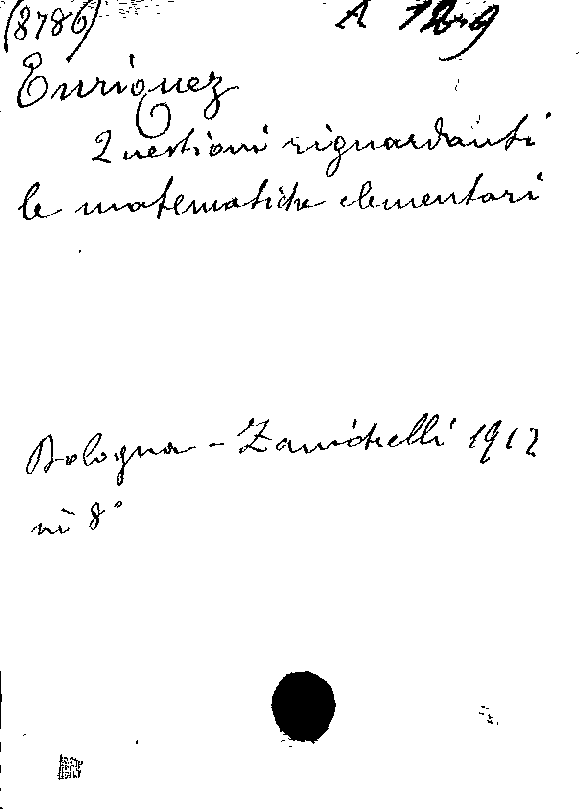 (8786)
Enriquez
Questioni riguardanti
le matematiche elementari
Bologna - Zanichelli 1912
in 8°